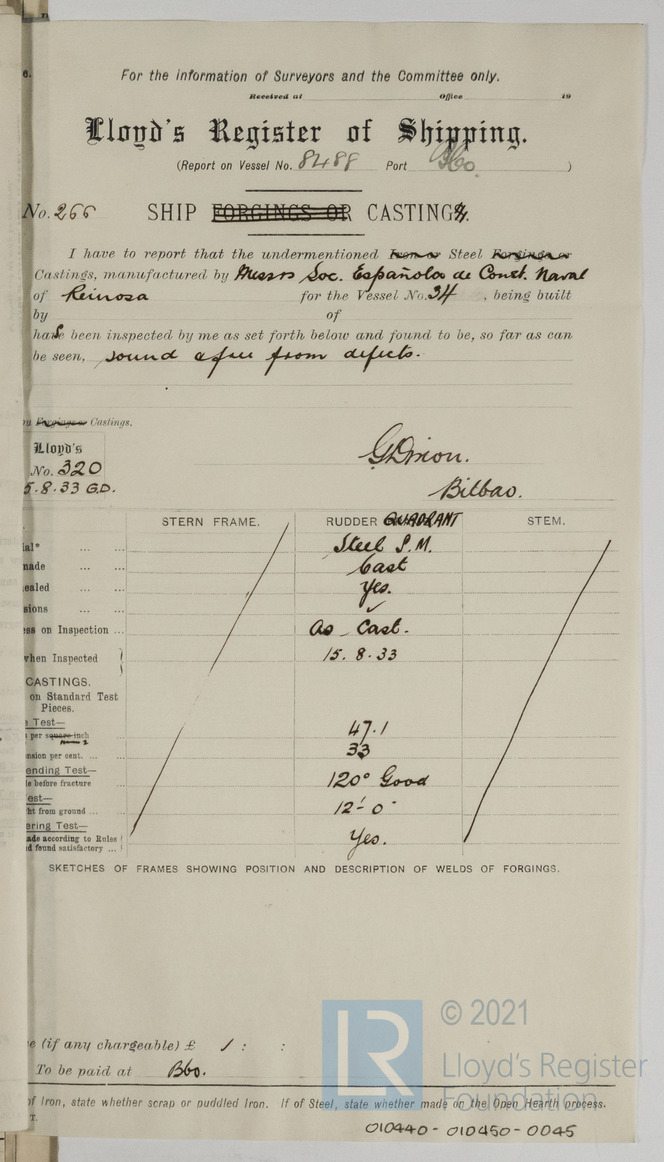 6.
For the information of Surveyors and the Committee only.
Received at Office 19
Lloyd's Register of Shipping.
(Report on Vessel No. 8488 Port Bbo. )
No. 266 SHIP FORGINGS OR CASTING.
I have to report that the undermentioned Iron or Steel Forgings or
Castings, manufactured by Messrs Soc. Española de Const. Naval
of Reinosa for the Vessel No. 34 , being built
by of
has been inspected by me as set forth below and found to be, so far as can
be seen, sound & free from defects.
Forgings or Castings.
Lloyd's
No. 320
5.8.33 G.D.
G Dixon.
Bilbao.
STERN FRAME. RUDDER QUADRANT STEM.
ial* ... ... Steel S.M.
made ... ... Cast
ealed ... ... Yes.
sions ... ... ✓
ess on Inspection ... As Cast.
when Inspected 15.8.33
CASTINGS.
on Standard Test
Pieces.
e Test—
per square inch ... 47.1
mm 2
nsion per cent. ... ... 33
ending Test—
le before fracture ... 120° Good
est—
ht from ground ... ... 12'-0"
ering Test—
ade according to Rules
d found satisfactory ... Yes.
SKETCHES OF FRAMES SHOWING POSITION AND DESCRIPTION OF WELDS OF FORGINGS.
e (if any chargeable) £ / : :
To be paid at Bbo.
of Iron, state whether scrap or puddled Iron. If of Steel, state whether made on the Open Hearth process.
T.
010440-010450-0045
LR
© 2021
Lloyd's Register
Foundation